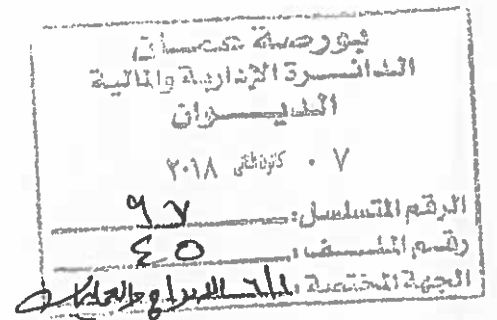 بورصة عمان
الدائرة الإدارية والمالية
الديوان
٠٧ كانون الثاني ٢٠١٨
الرقم المتسلسل: ٩٧
رقم الملف: ٤٥
الجهة المختصة: الإدراج والعمليات